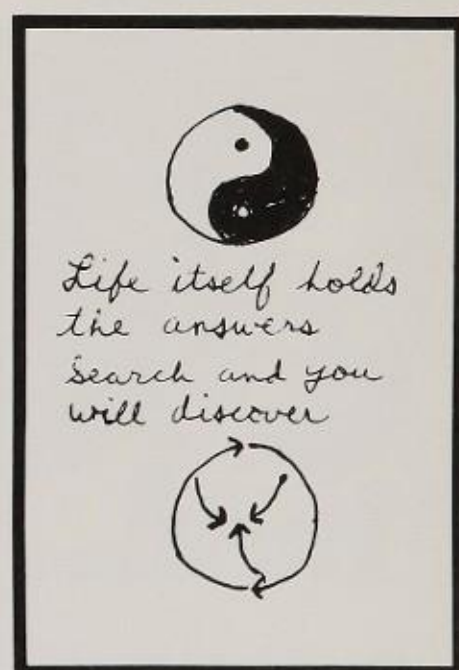 Life itself holds
the answers
search and you
will discover